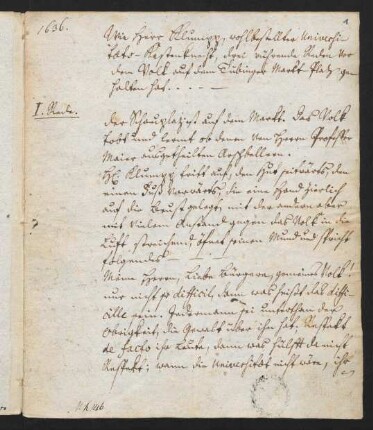 1636.
1
Wie Herr Klumpp, wohlbestallter Universi-
täts-Kastenknecht, drei rührende Reden vor
dem Volk auf dem Tübinger Markt-Platz ge-
halten hat.
I. Rede.
Der Schauplaz ist auf dem Markt. Das Volk
tobt und lermt ob denen von Herrn Professor
Maier ausgetheilten
H. Klumpp tritt auf, den Hut seitwärts, den
einen Fuß vorwärts, die eine Hand zierlich
auf die Brust gelegt, mit der andern aber
mit vielem Anstand gegen das Volk in die
Luft streichend, öfnet seinen Mund und spricht
folgendes
Meine Herren, Liebe Bürgere, gemeines Volk!
nur nicht so difficil, dann was heißt das diffi-
cille sein. Jedermann sei unterthan der
Obrigkeit, die Gewalt über ihn hat. Respekt
de facto ihr Leute, dann was hülfft da nicht
Respekt; wann die Universität nicht wär, ihr
Mh 446